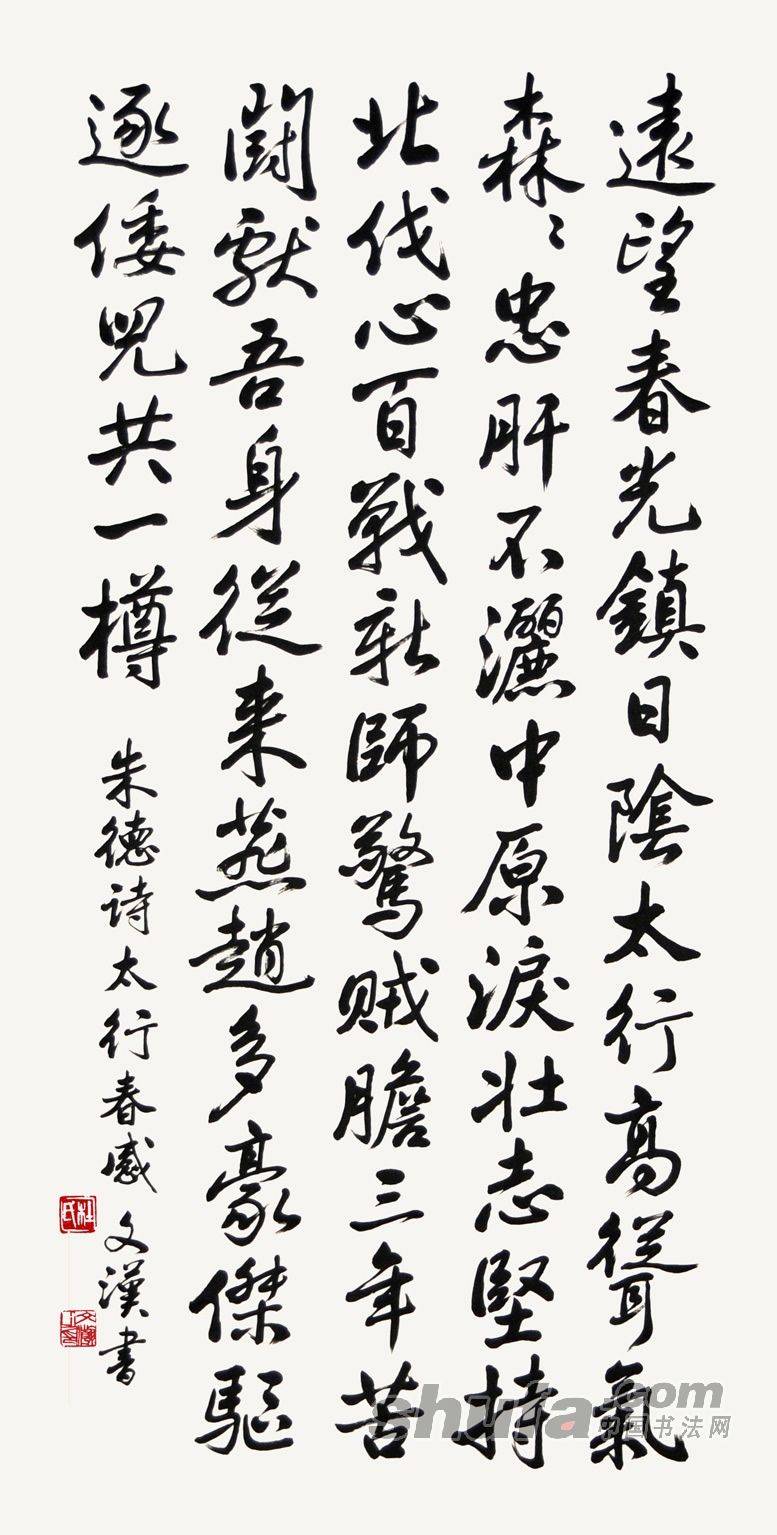 遠望春光鎮日陰太行高聳氣
森〻忠肝不灑中原淚壯志堅持
北伐心百戰新師驚賊膽三年苦
闘獻吾身從来燕趙多豪傑驅
逐倭兒共一樽
朱德诗太行春感 文漢書
杜氏
shufa.com
中国书法网